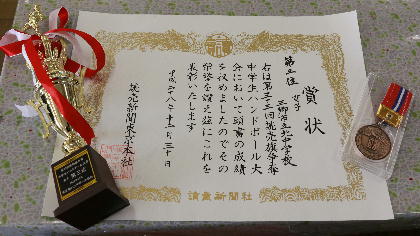 賞状
第三位
女子
三郷市立北中学校
右は第三十三回読売旗争奪
中学生ハンドボール大
会において頭書の成績
を収めましたのでその
栄誉を讃え茲にこれを
表彰いたします
平成二十八年十二月二十日
読売新聞東京本社
讀賣新聞社
第三位